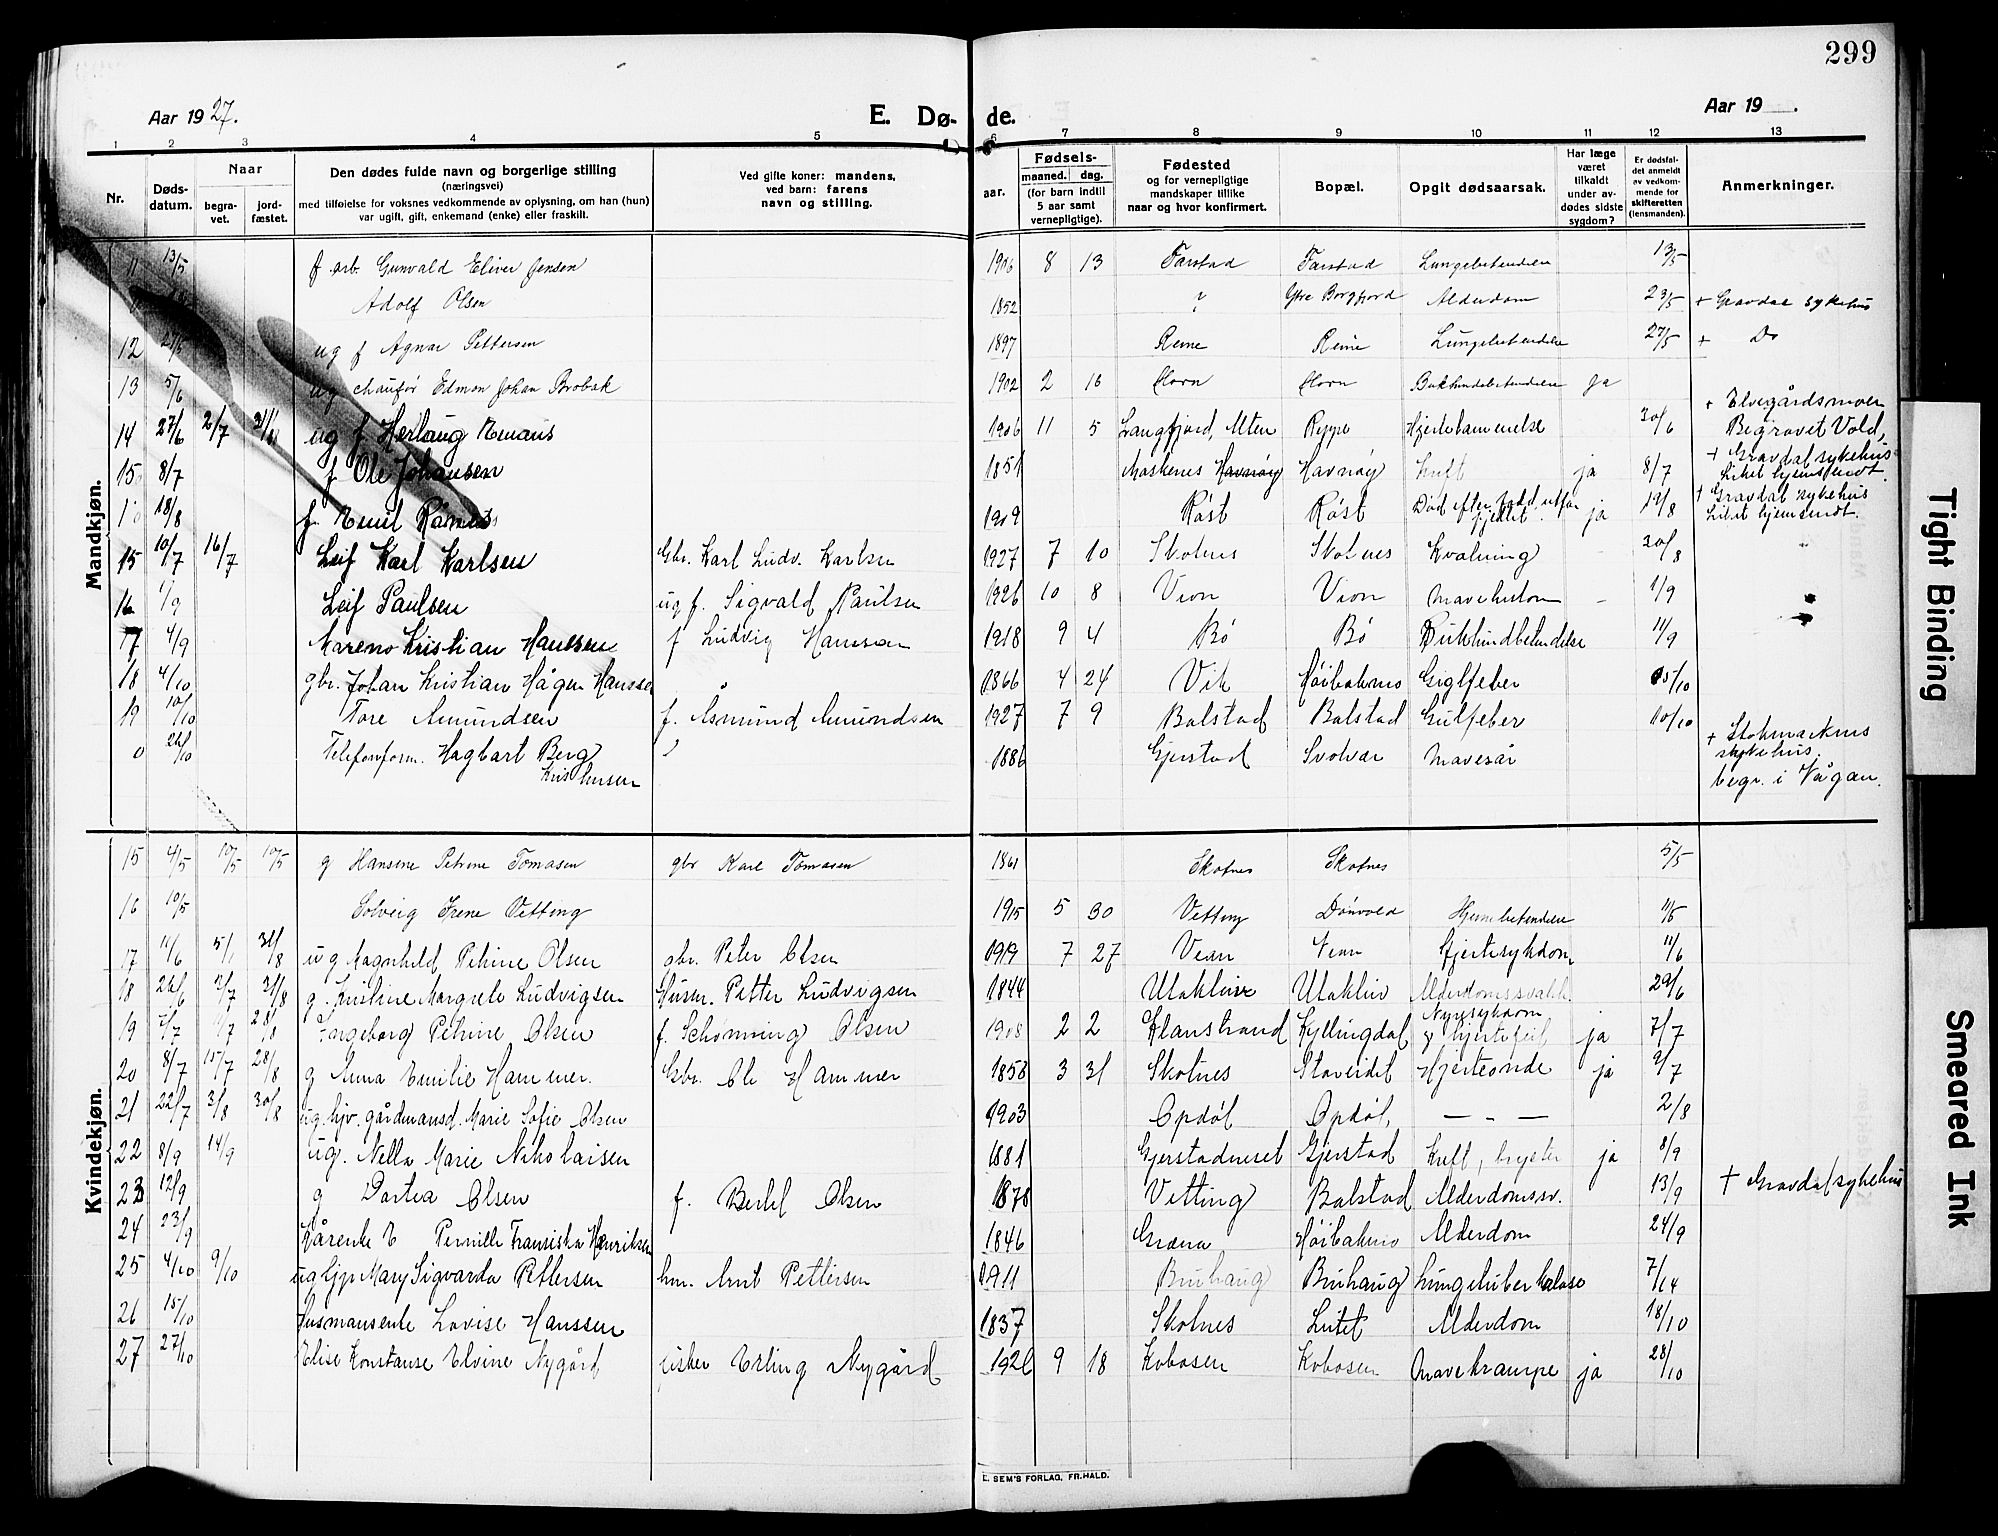 299
Aar 1927. E. Døde. Aar 19 .
1 2 3 4 5 6 7 8 9 10 11 12 13
Nr. Døds-datum. Naar begravet. jordfæstet. Den dødes fulde navn og borgerlige stilling (næringsvei) med tilføielse for voksnes vedkommende av oplysning, om han (hun) var ugift, gift, enkemand (enke) eller fraskilt. Ved gifte koner: mandens, ved barn: farens navn og stilling. aar. Fødsels- maaned. dag. (for barn indtil 5 aar samt vernepligtige). Fødested og for vernepligtige mandskaper tillike naar og hvor konfirmert. Bopæl. Opgit dødsaarsak. Har læge været tilkaldt under avdødes sidste sygdom? Er dødsfaldet anmeldt av vedkommende for skifteretten (lensmanden). Anmerkninger.
Mandkjøn.
11 13/5 f arb. Gunvald Eliver Jensen 1906 8 13 Farstad Farstad Lungebetendelse 13/5
Adolf Olsen 1852 ? Ytre Borgfjord Alderdom 23/5 + Gravdal sykehus
12 27/5 ug f Agnar Pettersen 1897 Reine Reine Lungebetendelse 27/5 + Do
13 5/6 ug chaufør Edmon Johan Brobak 1902 2 16 Horn Horn Bukhindebetendelse ja
14 27/6 2/7 31/ ug f Herlaug 1906 11 5 Langfjord, Alten Reppe Hjertelammelse 30/6 + Elvegårdsmoen Begravet Vold,
15 8/7 f Ole Johansen 1851 Moskenes Havnøy Havnøy Kreft ja 8/7 + Gravdal sykehus Liket hjemsendt.
18/8 f. Emil 1909 Røst Røst Død efter fald utfor fjeldet. ja 19/8 + Gravdal sykehus Liket hjemsendt.
15 10/7 16/7 Leif Karl Karlsen Gbr. Karl Ludv. Karlsen 1927 7 10 Skotnes Skotnes Kvælning - 20/8 "
16 1/9 Leif Paulsen ug f. Sigvald Paulsen 1926 10 8 - 1/9
17 4/9 Mareno Kristian Hanssen f Ludvig Hansen 1918 9 4 Bø Bø Bukhindbetendelse 11/9
18 4/10 gbr. Johan Kristian Hågen Hanssen 1866 4 24 Vik Høibakmo Giglfeber 5/10
19 10/10 Tore Amundsen f. Åsmund Amundsen 1927 7 9 Balstad Balstad Gulfeber 10/10
26/10 Telefonform. Hagbart Berg 1886 Gjerstad Svolvær Mavesår + Stokmarknes sykehus. begr. i Vågan.
Kvindekjøn.
15 4/5 10/5 10/5 g Hansene Petrine Tomasen gbr Karl Tomasen 1861 Skotnes Skotnes 5/5
16 10/5 Solveig Irene Vetting 1915 5 30 Vetting Hjernebetendelse 11/5
17 11/6 31/8 ug Magnhild Petrine Olsen gbr. Peter Olsen 1919 7 27 Hjertesykdom 11/6
18 26/6 2/7 31/8 g. Kristine Margrete Ludvigsen Husm. Petter Ludvigsen 1844 Utakleiv Utakleiv Alderdomssvakk. 29/6
19 7/7 28/8 Ingeborg Petrine Olsen f. Schønning Olsen 1908 2 2 Klanstrand Kyllingdal Nyresykdom g hjertefeil ja 7/7
20 8/7 15/7 28/8 g Anna Emilie Hammer. Gbr. Ole Hammer 1858 3 31 Skotnes Hjerteonde ja 9/7
21 22/7 3/8 30/8 ug. hjv. gårdmansd. Marie Sofie Olsen 1903 Opdøl Opdøl, — - — 2/8
22 8/9 14/9 ug. Nella Marie Nikolaisen 1881 Gjerstadneset Gjerstad Kreft, brystet ja 8/9
23 12/9 g Dortea Olsen f. Bertel Olsen 1878 Vetting Balstad Alderdomssv. 13/9 + Gravdal sykehus
24 23/9 Kårenke E Pernille Fransiska Henriksen 1846 Høibakmo Alderdom 24/9
25 4/10 9/10 ug hjp Mary Sigvarda Pettersen hm. Arnt Pettersen 1911 Bruhaug Bruhaug Lungetuberkulose 7/14
26 15/10 Husmansenke Lovise Hanssen 1837 Skotnes Alderdom 18/10
27 27/10 Elise Konstanse Elvine Nygård fisker Erling Nygård 1926 9 18 Kobosen Kobosen Mavekrampe ja 28/10
E. SEM'S FORLAG, FR.HALD.
Tight Binding
Smeared Ink